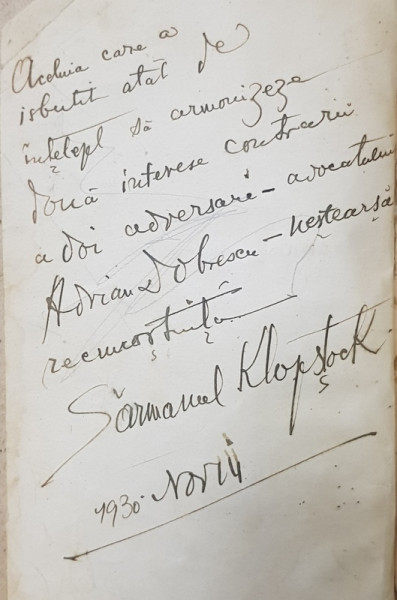 Aceluia care a
isbutit atât de
înțelept să armonizeze
două interese contrarii
a doi adversari – avocatului
Adrian Dobrescu – neștearsă
recunoștință
Sărmanul Klopștock
1930 Novr